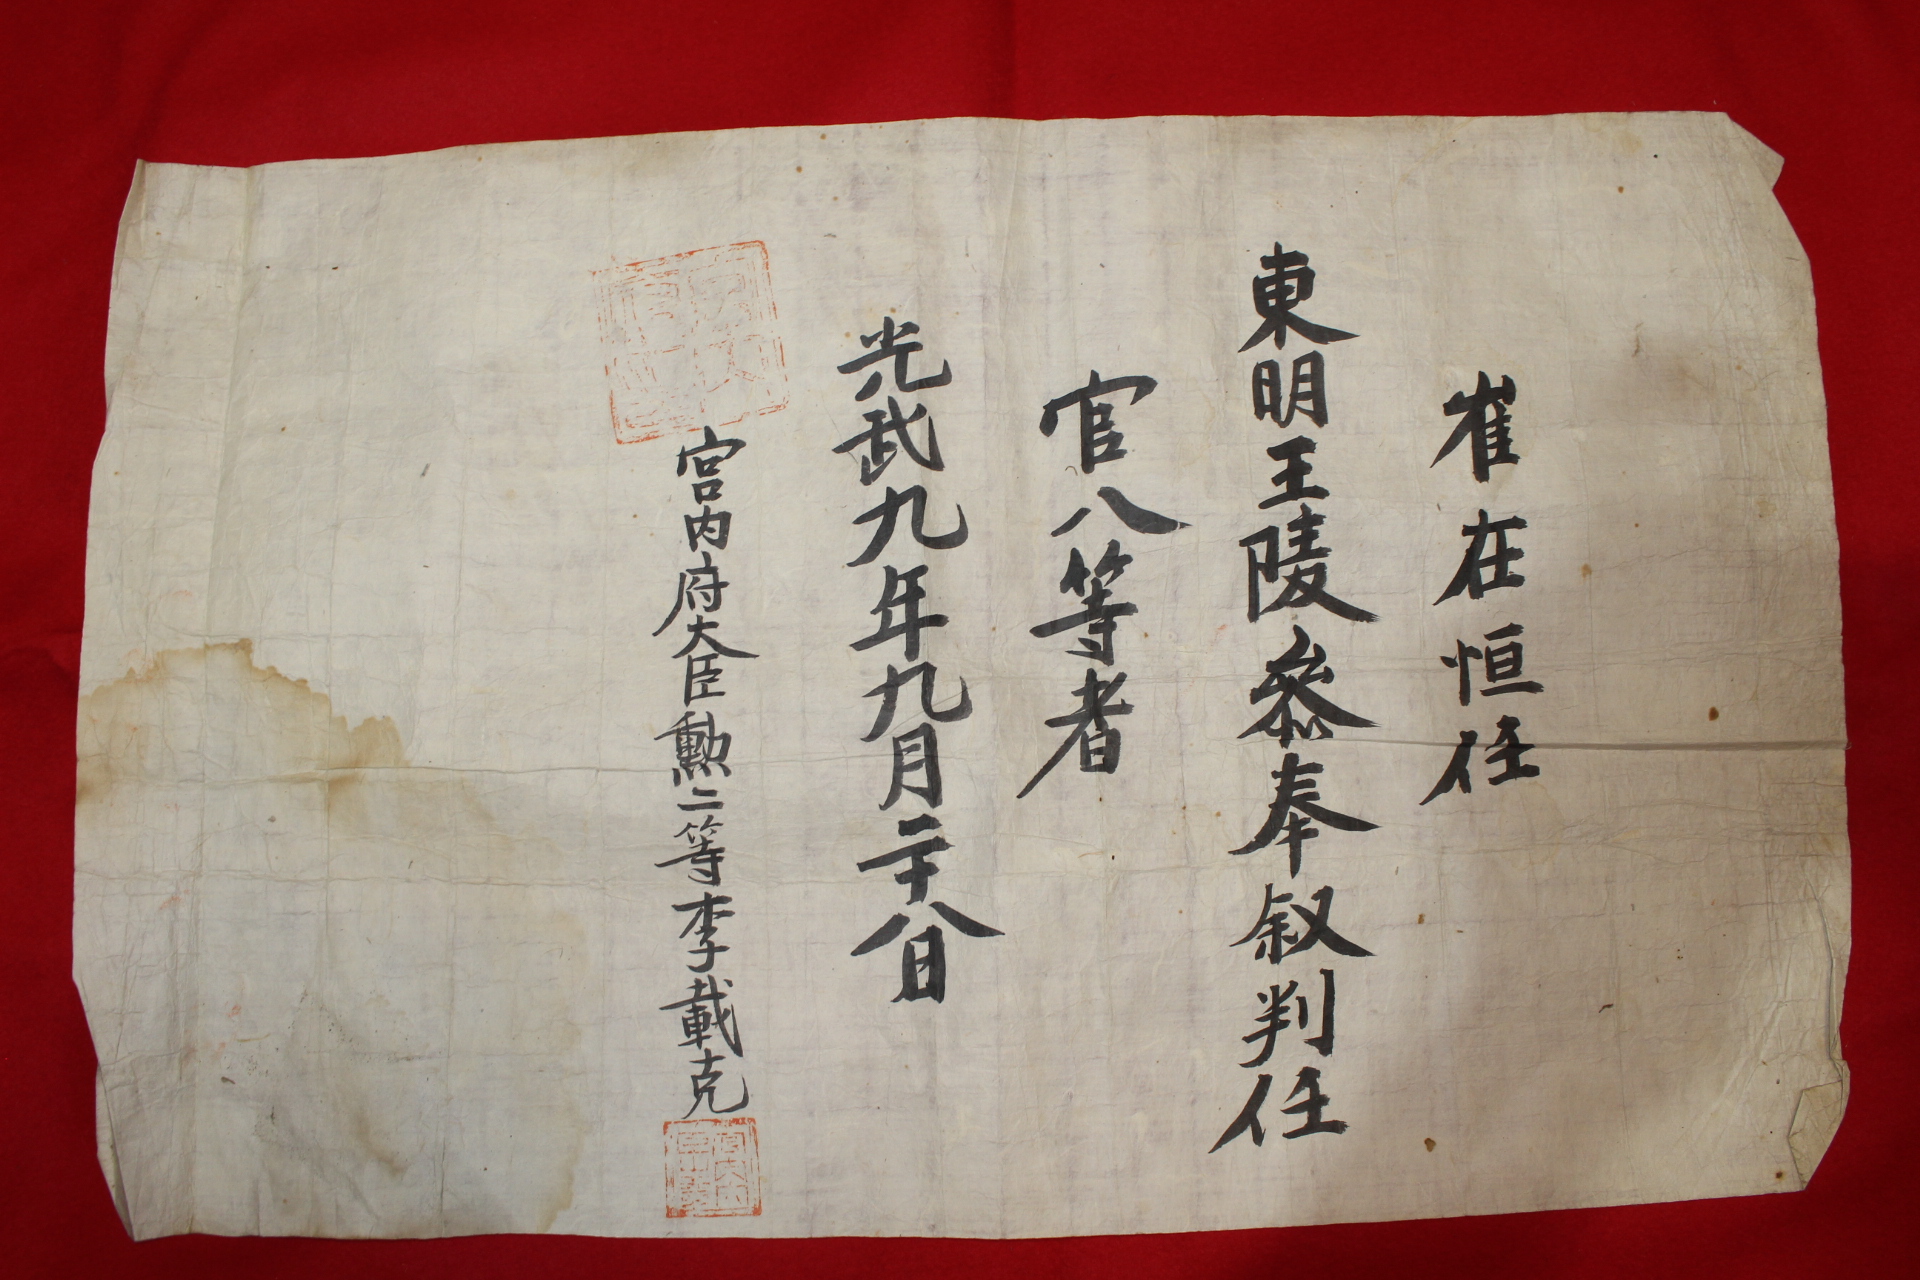 崔在恒任
東明王陵叅奉叙判任
官八等者
光武九年九月二十八日
宮内府大臣勳二等李載克